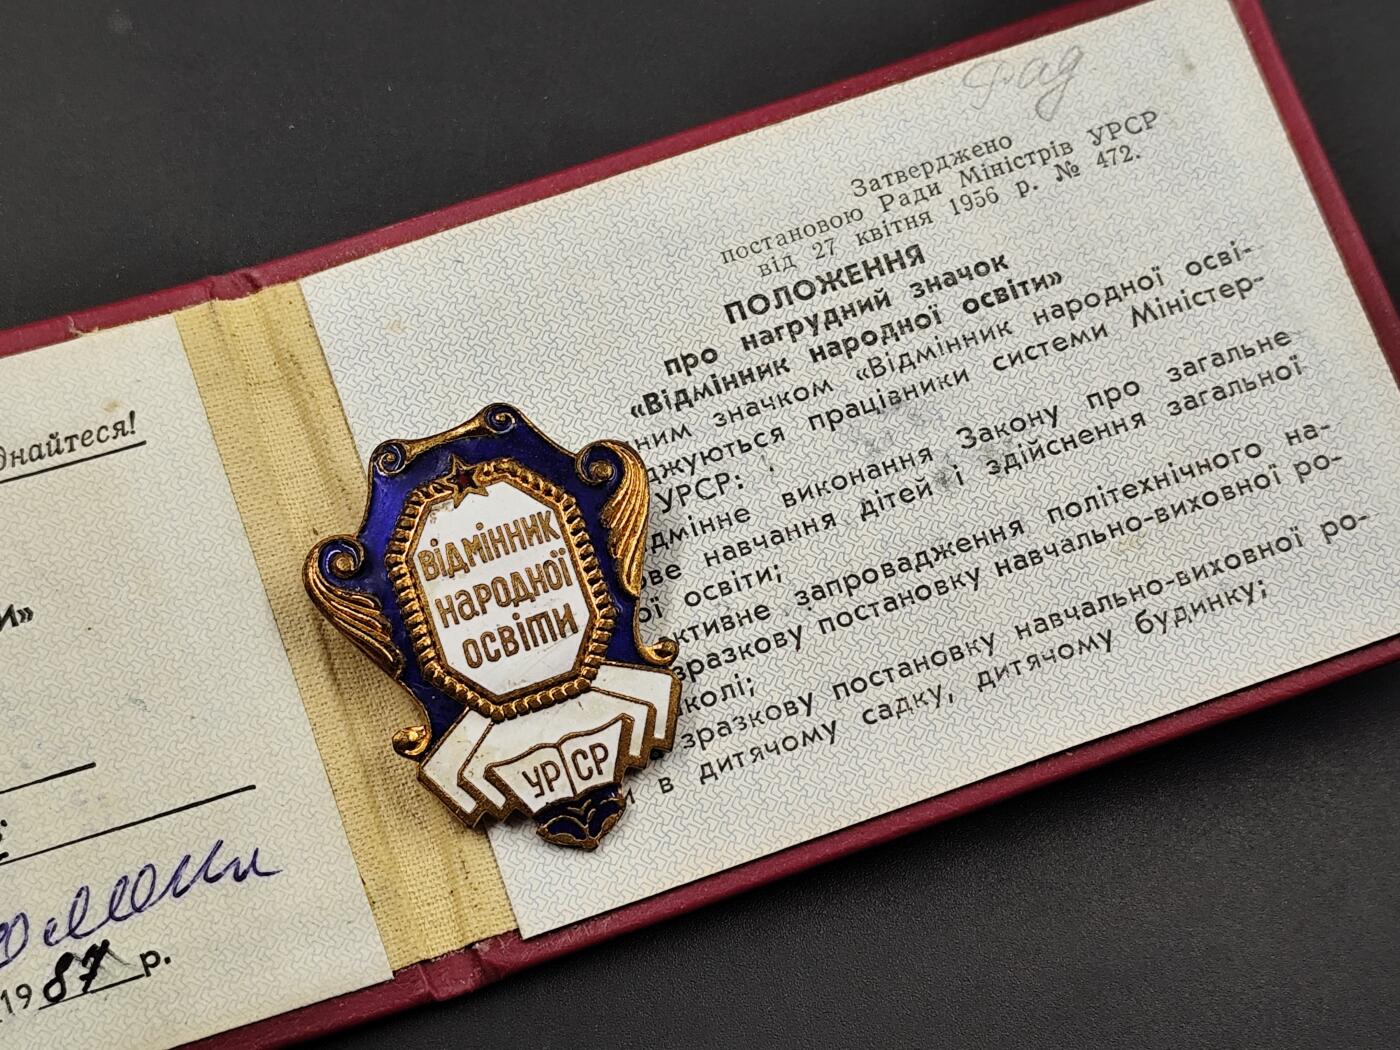 днайтеся!
и»
19 87 р.
Затверджено
постановою Ради Міністрів УРСР
від 27 квітня 1956 р. № 472.
ПОЛОЖЕННЯ
про нагрудний значок
«Відмінник народної освіти»
ним значком «Відмінник народної осві-
джуються працівники системи Міністер-
УРСР:
дмінне виконання Закону про загальне
ове навчання дітей і здійснення загальної
ої освіти;
ктивне запровадження політехнічного на-
зразкову постановку навчально-виховної ро-
колі;
зразкову постановку навчально-виховної ро-
и в дитячому садку, дитячому будинку;
ВІДМІННИК
НАРОДНОЇ
ОСВІТИ
УРСР